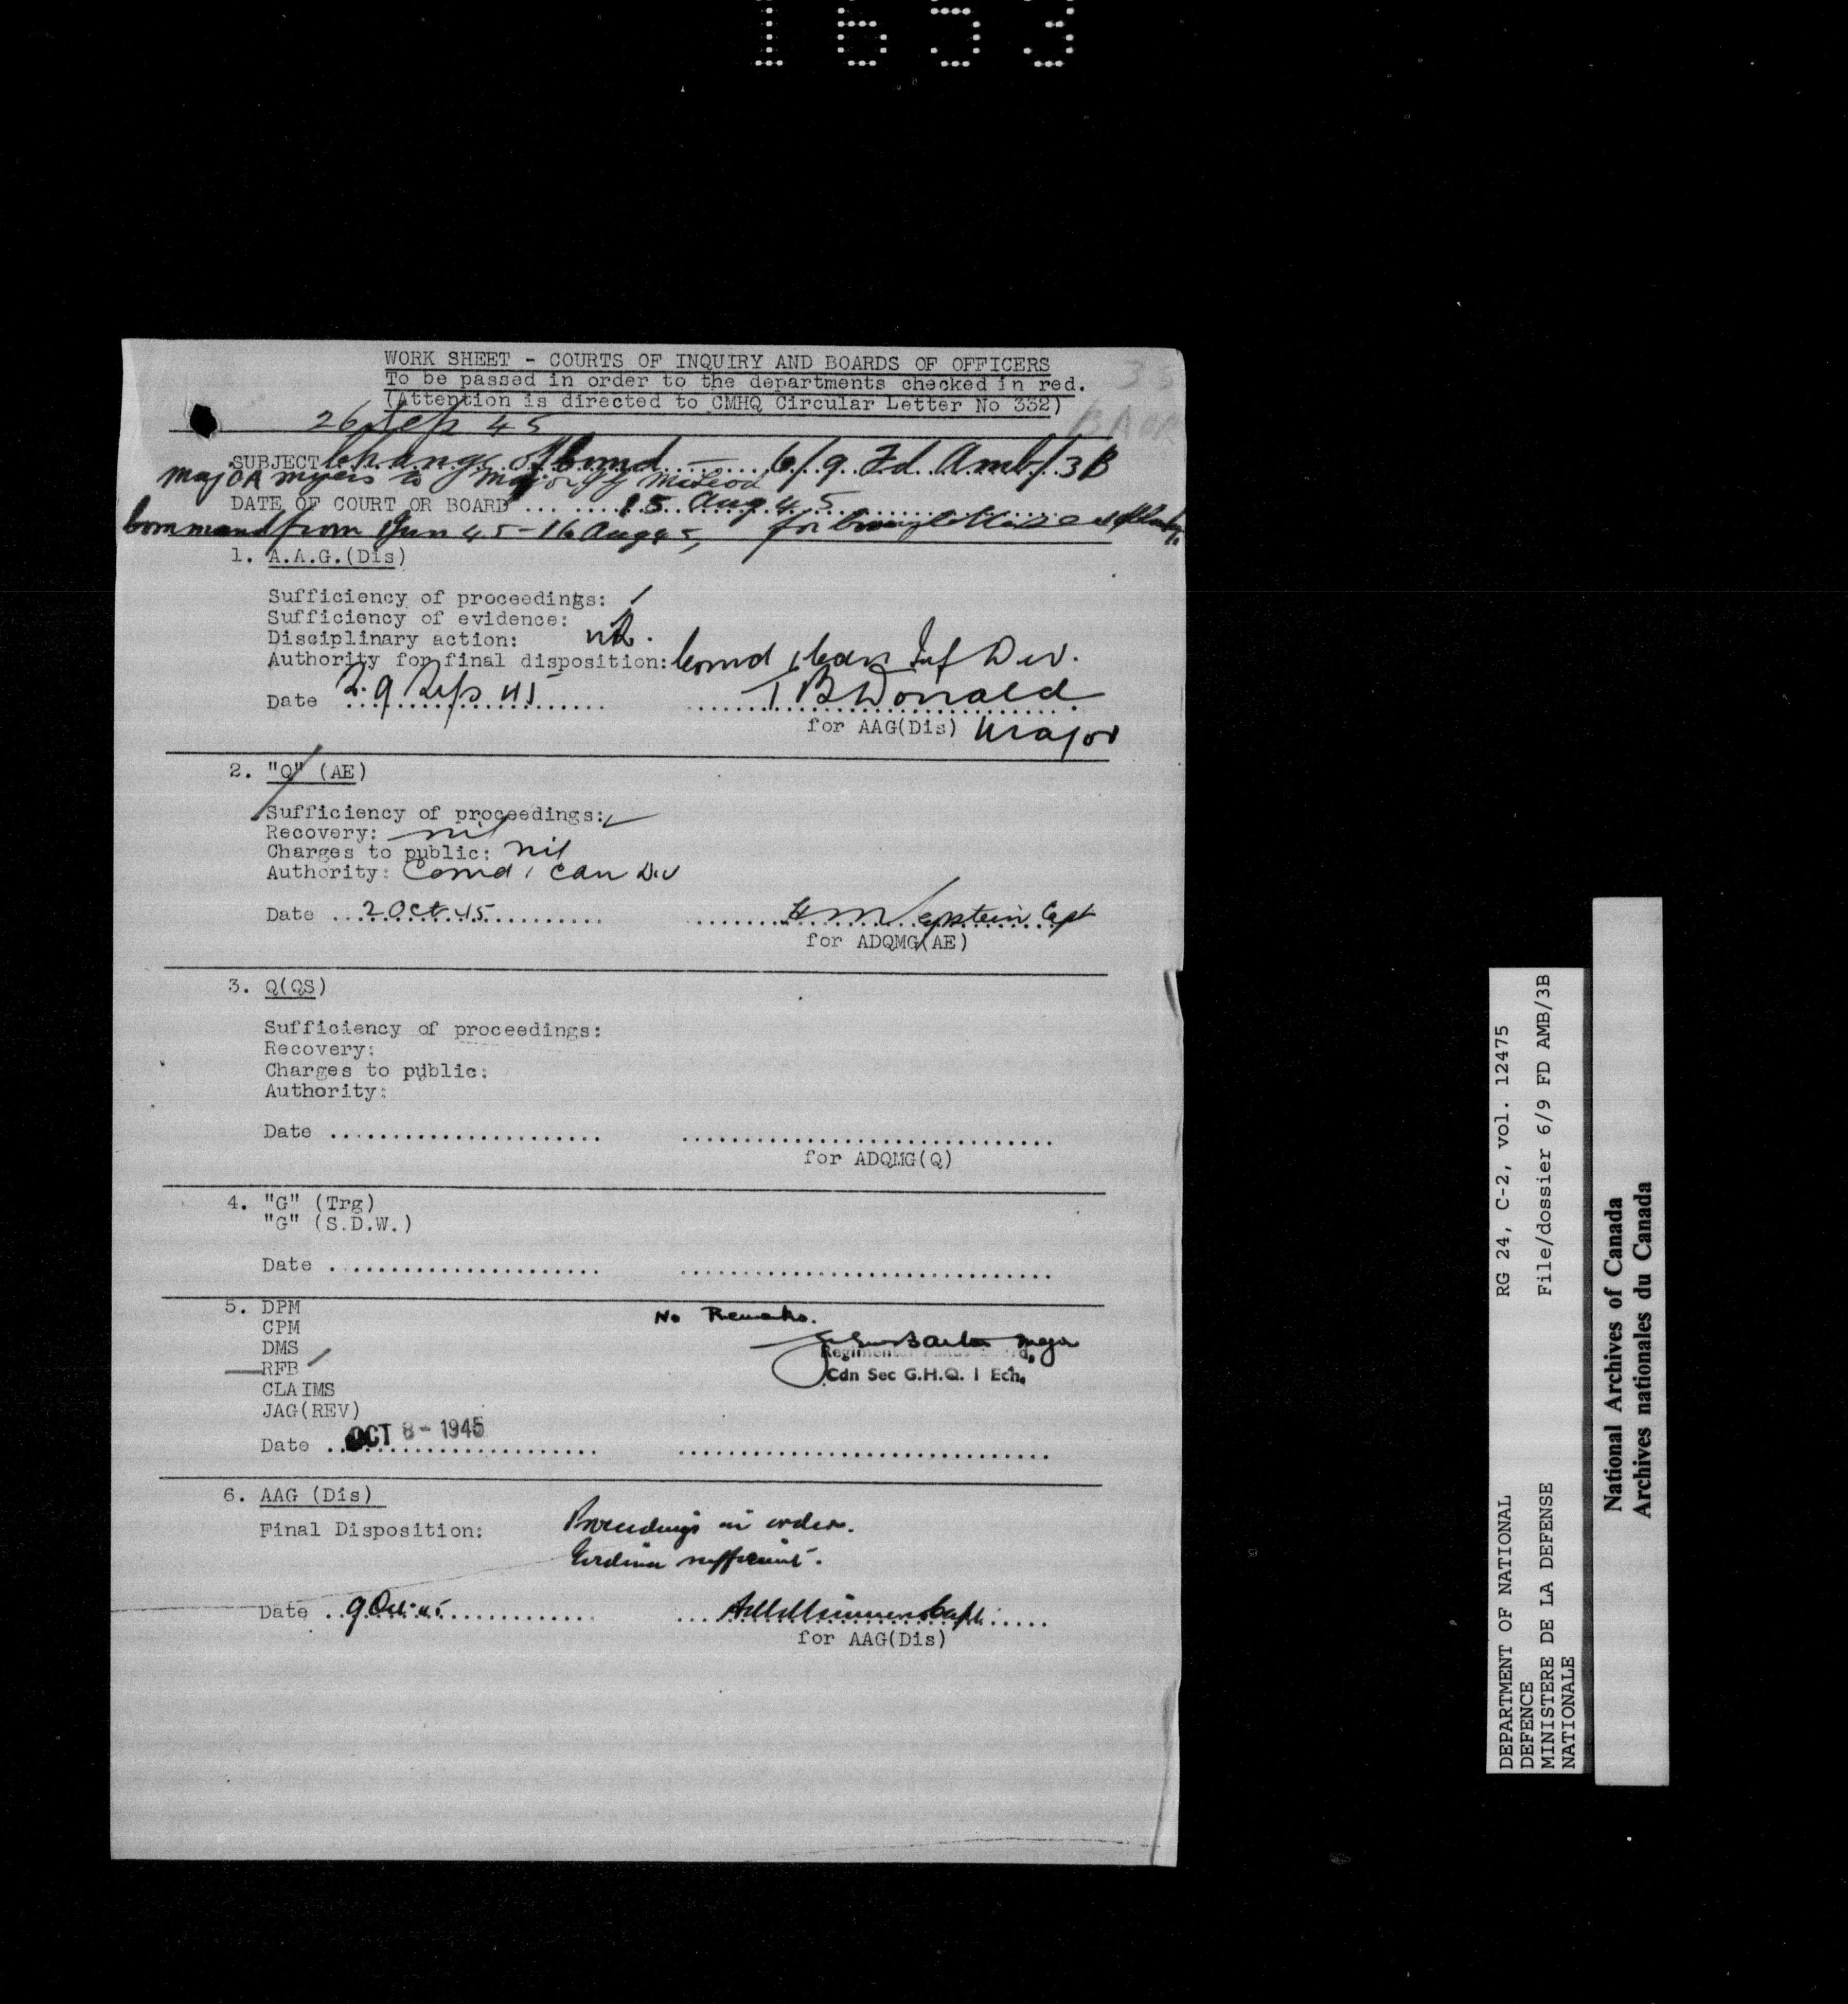 1653
WORK SHEET - COURTS OF INQUIRY AND BOARDS OF OFFICERS
To be passed in order to the departments checked in red.
(Attention is directed to CMHQ Circular Letter No 332)
35
BAOR
26 Sep 45
SUBJECT Change of Comd - 6/9 Fd Amb/3B
Major Myers to Major McLeod
DATE OF COURT OR BOARD ... 15 Aug 45
Command from Jun 45 - 16 Aug 45, for
1. A.A.G.(Dis)
Sufficiency of proceedings: /
Sufficiency of evidence:
Disciplinary action: nil.
Authority for final disposition: Comd 1 Cdn Inf Div.
Date 29 Sep 45 T B Donald
for AAG(Dis) Major
2. "Q" (AE)
Sufficiency of proceedings: ✓
Recovery: nil
Charges to public: nil
Authority: Comd 1 Can Div
Date ...2 Oct 45... H M Epstein Capt
for ADQMG(AE)
3. Q(QS)
Sufficiency of proceedings:
Recovery:
Charges to public:
Authority:
Date ........................ .................................
for ADQMG(Q)
4. "G" (Trg)
"G" (S.D.W.)
Date ........................ .................................
5. DPM No Remarks.
CPM
DMS Major
RFB ✓ Regimental Funds Board,
Cdn Sec G.H.Q. 1 Ech.
CLAIMS
JAG(REV)
Date ..OCT 8 - 1945.......... .................................
6. AAG (Dis)
Final Disposition: Proceedings in order.
Evidence sufficient.
Date ..9 Oct 45.............. Capt.....
for AAG(Dis)
DEPARTMENT OF NATIONAL DEFENCE
MINISTERE DE LA DEFENSE NATIONALE
RG 24, C-2, vol. 12475
File/dossier 6/9 FD AMB/3B
National Archives of Canada
Archives nationales du Canada